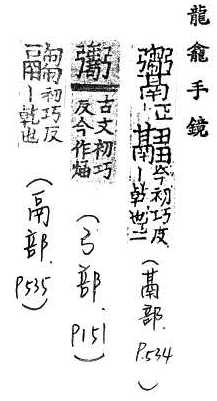 龍龕手鏡
正
今初巧反
丨乾也二
部.
P.534
古文初巧
反今作
(弓部.
P151)
初巧反
丨乾也
(鬲部.
P535)